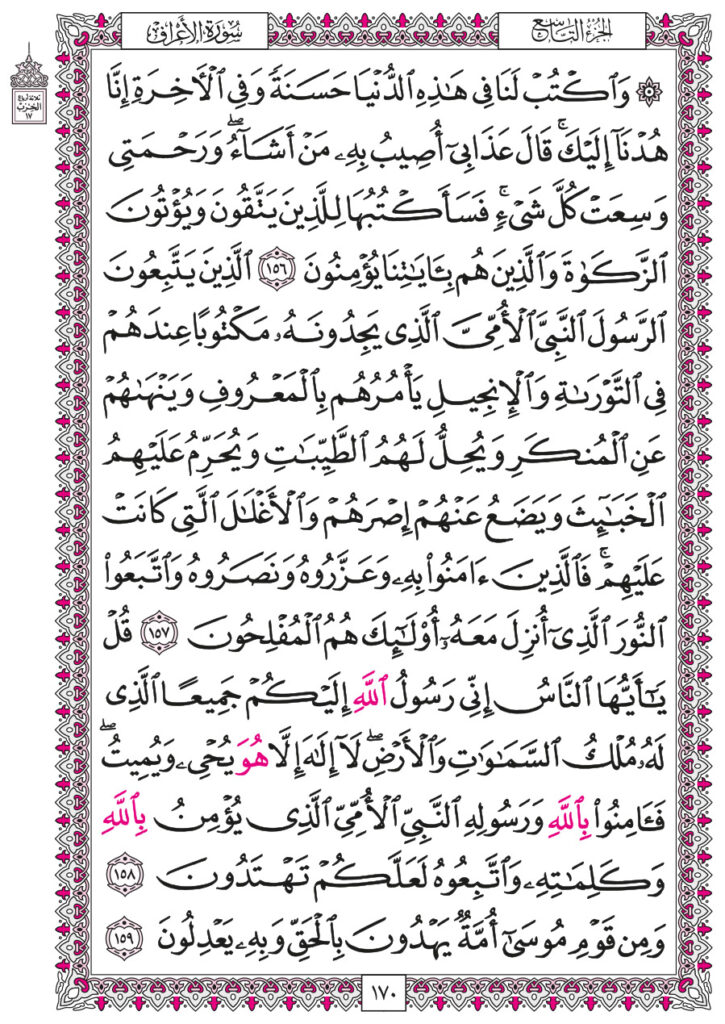 الجزء التاسع
سورة الأعراف
ثلاثة أرباع
الحزب
١٧
۞ وَٱكۡتُبۡ لَنَا فِي هَٰذِهِ ٱلدُّنۡيَا حَسَنَةٗ وَفِي ٱلۡأٓخِرَةِ إِنَّا
هُدۡنَآ إِلَيۡكَۚ قَالَ عَذَابِيٓ أُصِيبُ بِهِۦ مَنۡ أَشَآءُۖ وَرَحۡمَتِي
وَسِعَتۡ كُلَّ شَيۡءٖۚ فَسَأَكۡتُبُهَا لِلَّذِينَ يَتَّقُونَ وَيُؤۡتُونَ
ٱلزَّكَوٰةَ وَٱلَّذِينَ هُم بِـَٔايَٰتِنَا يُؤۡمِنُونَ ١٥٦ ٱلَّذِينَ يَتَّبِعُونَ
ٱلرَّسُولَ ٱلنَّبِيَّ ٱلۡأُمِّيَّ ٱلَّذِي يَجِدُونَهُۥ مَكۡتُوبًا عِندَهُمۡ
فِي ٱلتَّوۡرَىٰةِ وَٱلۡإِنجِيلِ يَأۡمُرُهُم بِٱلۡمَعۡرُوفِ وَيَنۡهَىٰهُمۡ
عَنِ ٱلۡمُنكَرِ وَيُحِلُّ لَهُمُ ٱلطَّيِّبَٰتِ وَيُحَرِّمُ عَلَيۡهِمُ
ٱلۡخَبَٰٓئِثَ وَيَضَعُ عَنۡهُمۡ إِصۡرَهُمۡ وَٱلۡأَغۡلَٰلَ ٱلَّتِي كَانَتۡ
عَلَيۡهِمۡۚ فَٱلَّذِينَ ءَامَنُواْ بِهِۦ وَعَزَّرُوهُ وَنَصَرُوهُ وَٱتَّبَعُواْ
ٱلنُّورَ ٱلَّذِيٓ أُنزِلَ مَعَهُۥٓ أُوْلَٰٓئِكَ هُمُ ٱلۡمُفۡلِحُونَ ١٥٧ قُلۡ
يَٰٓأَيُّهَا ٱلنَّاسُ إِنِّي رَسُولُ ٱللَّهِ إِلَيۡكُمۡ جَمِيعًا ٱلَّذِي
لَهُۥ مُلۡكُ ٱلسَّمَٰوَٰتِ وَٱلۡأَرۡضِۖ لَآ إِلَٰهَ إِلَّا هُوَ يُحۡيِۦ وَيُمِيتُۖ
فَـَٔامِنُواْ بِٱللَّهِ وَرَسُولِهِ ٱلنَّبِيِّ ٱلۡأُمِّيِّ ٱلَّذِي يُؤۡمِنُ بِٱللَّهِ
وَكَلِمَٰتِهِۦ وَٱتَّبِعُوهُ لَعَلَّكُمۡ تَهۡتَدُونَ ١٥٨
وَمِن قَوۡمِ مُوسَىٰٓ أُمَّةٞ يَهۡدُونَ بِٱلۡحَقِّ وَبِهِۦ يَعۡدِلُونَ ١٥٩
١٧٠